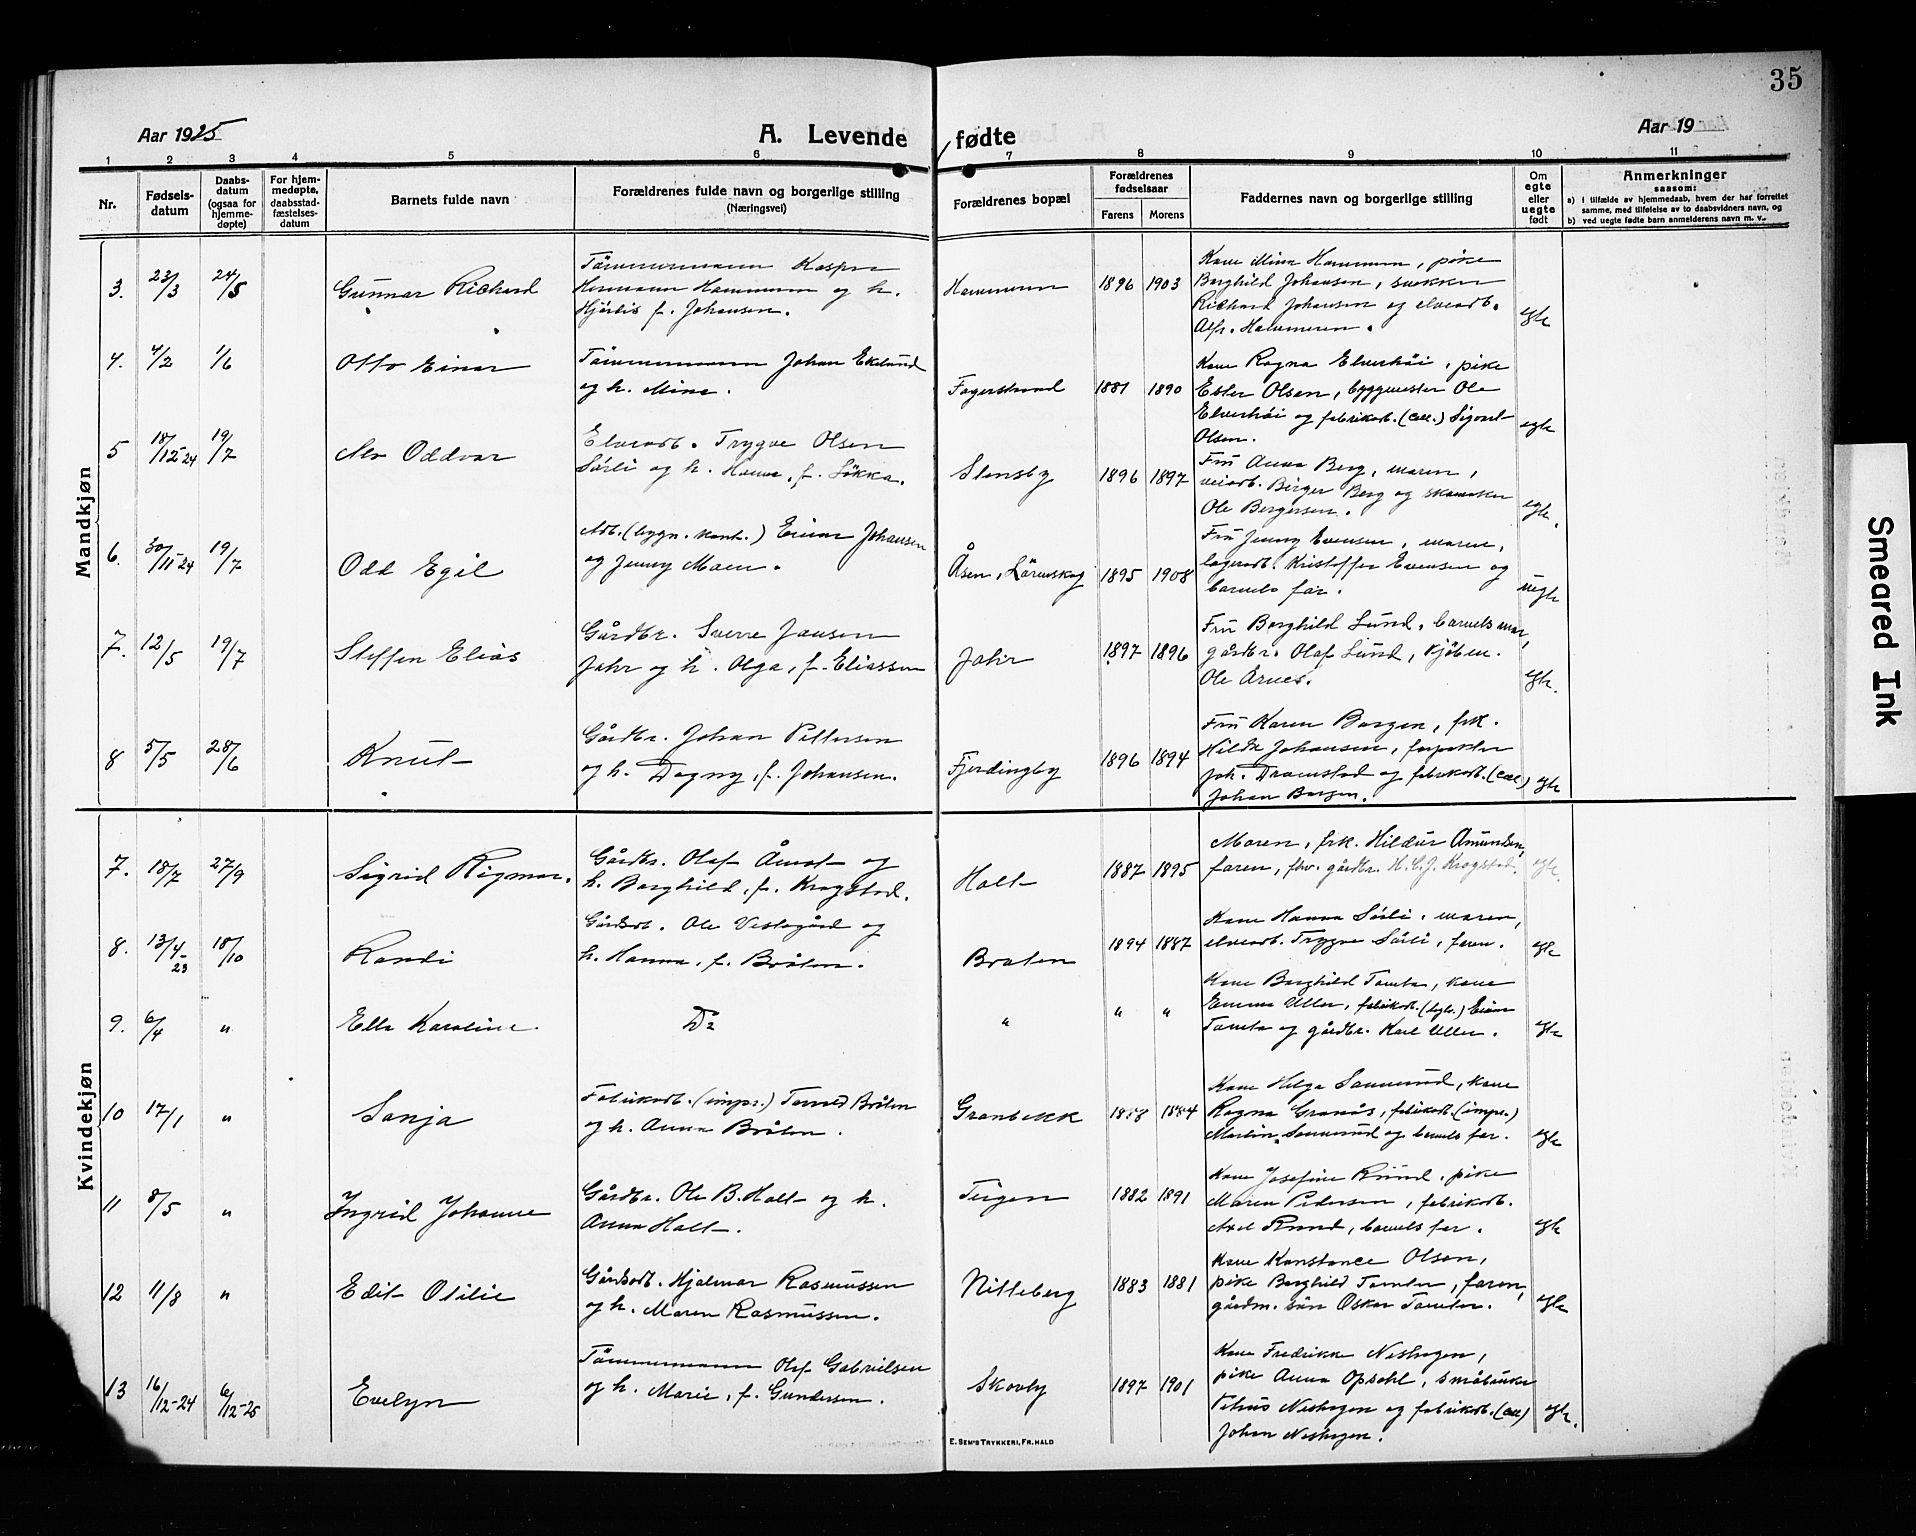 35
Aar 1925
A. Levende fødte
Aar 19
1 2 3 4 5 6 7 8 9 10 11
Nr.
Fødsels-
datum
Daabs-
datum
(ogsaa for
hjemme-
døpte)
For hjem-
medøpte,
daabsstad-
fæstelses-
datum
Barnets fulde navn
Forældrenes fulde navn og borgerlige stilling
(Næringsvei)
Forældrenes bopæl
Forældrenes
fødselsaar
Farens Morens
Faddernes navn og borgerlige stilling
Om
egte
eller
uegte
født
Anmerkninger
saasom:
a) i tilfælde av hjemmedaab, hvem der har forrettet
samme, med tilføielse av to daabsvidners navn, og
b) ved uegte fødte barn anmelderens navn m. v.
Mandkjøn
3. 23/3 24/5 Gunnar Richard
Tömmermann Kaspar
Hermann Hammeren og h.
Hjördis f. Johansen.
Hammeren 1896 1903
Kone Mina Hammeren, pike
Borghild Johansen, snekker
Richard Johansen og elvearb.
Alfr. Hammeren.
egte
4. 4/2 1/6 Otto Einar
Tömmermann Johan Eklund
og h. Mina.
Fagerstrand 1881 1890
Kone Ragna Elverhöi, pike
Ester Olsen, byggmester Ole
Elverhöi og fabrikarb. (cell.) Sigurd
Olsen.
egte
5 18/12-24 19/7 Alv Oddvar
Elvearb. Trygve Olsen
Sörli og h. Hanna, f. Lökka.
Stensby 1896 1897
Fru Anna Berg, moren,
veiarb. Birger Berg og skomaker
Ole Bergersen.
egte.
6. 30/11-24 19/7 Odd Egil
Arb. (bygn. kont.) Einar Johansen
og Jenny Moen.
Åsen, Lörenskog 1895 1908
Fru Jenny Evensen, moren,
lagerarb. Kristoffer Evensen og
barnets far.
uegte
7. 12/5 19/7 Steffen Elias
Gårdbr. Sverre Jansen
Jahr og h. Olga, f. Eliassen
Jahr 1897 1896
Fru Borghild Lund, barnets mor,
gårdbr. Olaf Lund, kjöbm.
Ole Årnes.
egte.
8 5/5 28/6 Knut
Gårdbr. Johan Pettersen
og h. Dagny, f. Johansen.
Fjerdingby 1896 1894
Fru Karen Borgen, frk.
Hilda Johansen, forpakter
Joh. Dramstad og fabrikarb. (cell)
Johan Borgen.
egte
Kvindekjøn
7. 18/7 27/9 Sigrid Rigmor.
Gårdbr. Olaf Åmot og
h. Borghild, f. Krogstad.
Holt 1887 1895
Moren, frk. Hildur Amundsen,
faren, fhv. gårdbr. H. C. J. Krogstad.
egte.
8. 13/4-23 18/10 Randi
Gårdsarb. Ole Vestegård og
h. Hanna, f. Bråten.
Braten 1894 1887
Kone Hanna Sörli, moren,
elvearb. Trygve Sörli, faren.
egte
9. 6/4 " Ella Karoline.
Do
" " "
Kone Borghild Tomta, kone
Emma Uller, fabrikarb. Einar
Tomta og gårdbr. Karl Uller.
egte
10 17/1 " Sonja
Fabrikarb. (impr.) Bråten
og h. Anna Bråten.
Granbekk 1888 1884
Kone Helga Sannerud, kone
Ragna Granås, fabrikarb. (impr.)
Martin Sannerud og barnets far.
egte
11 8/5 " Ingrid Johanne
Gårdbr. Ole B. Holt og h.
Anna Holt.
Teigen 1882 1891
Kone Josefine Rund, pike
Maren Pedersen, fabrikarb.
Axel Rund, barnets far.
egte
12 11/8 " Edit Otilie
Gårdsarb. Hjalmar Rasmussen
og h. Maren Rasmussen.
Nitteberg 1883 1881
Kone Konstance Olsen,
pike Borghild Tomter, faren,
gårdm. sön Oskar Tomter.
egte
13 16/12-24 6/12-25 Evelyn
Tömmermann Olaf Gabrielsen
og h. Marie, f. Gundersen.
Skovly 1897 1901
Kone Fredrikke Neshagen,
pike Anna Opsahl, småbruker
Petrus Neshagen og fabrikarb. (cell)
Johan Neshagen.
egte.
E. SEM'S TRYKKERI, FR. HALD
Smeared Ink